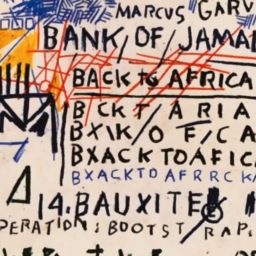 MARCUS GARV
BANK/OF/JAMAI
BACK to AFRICA
B CKT/ARIA
BXIK/O F/CA
BXACKTOAFIC
BXACKTOAFRCKA
14. BAUXITE
PERATION: BOOTST RAP.